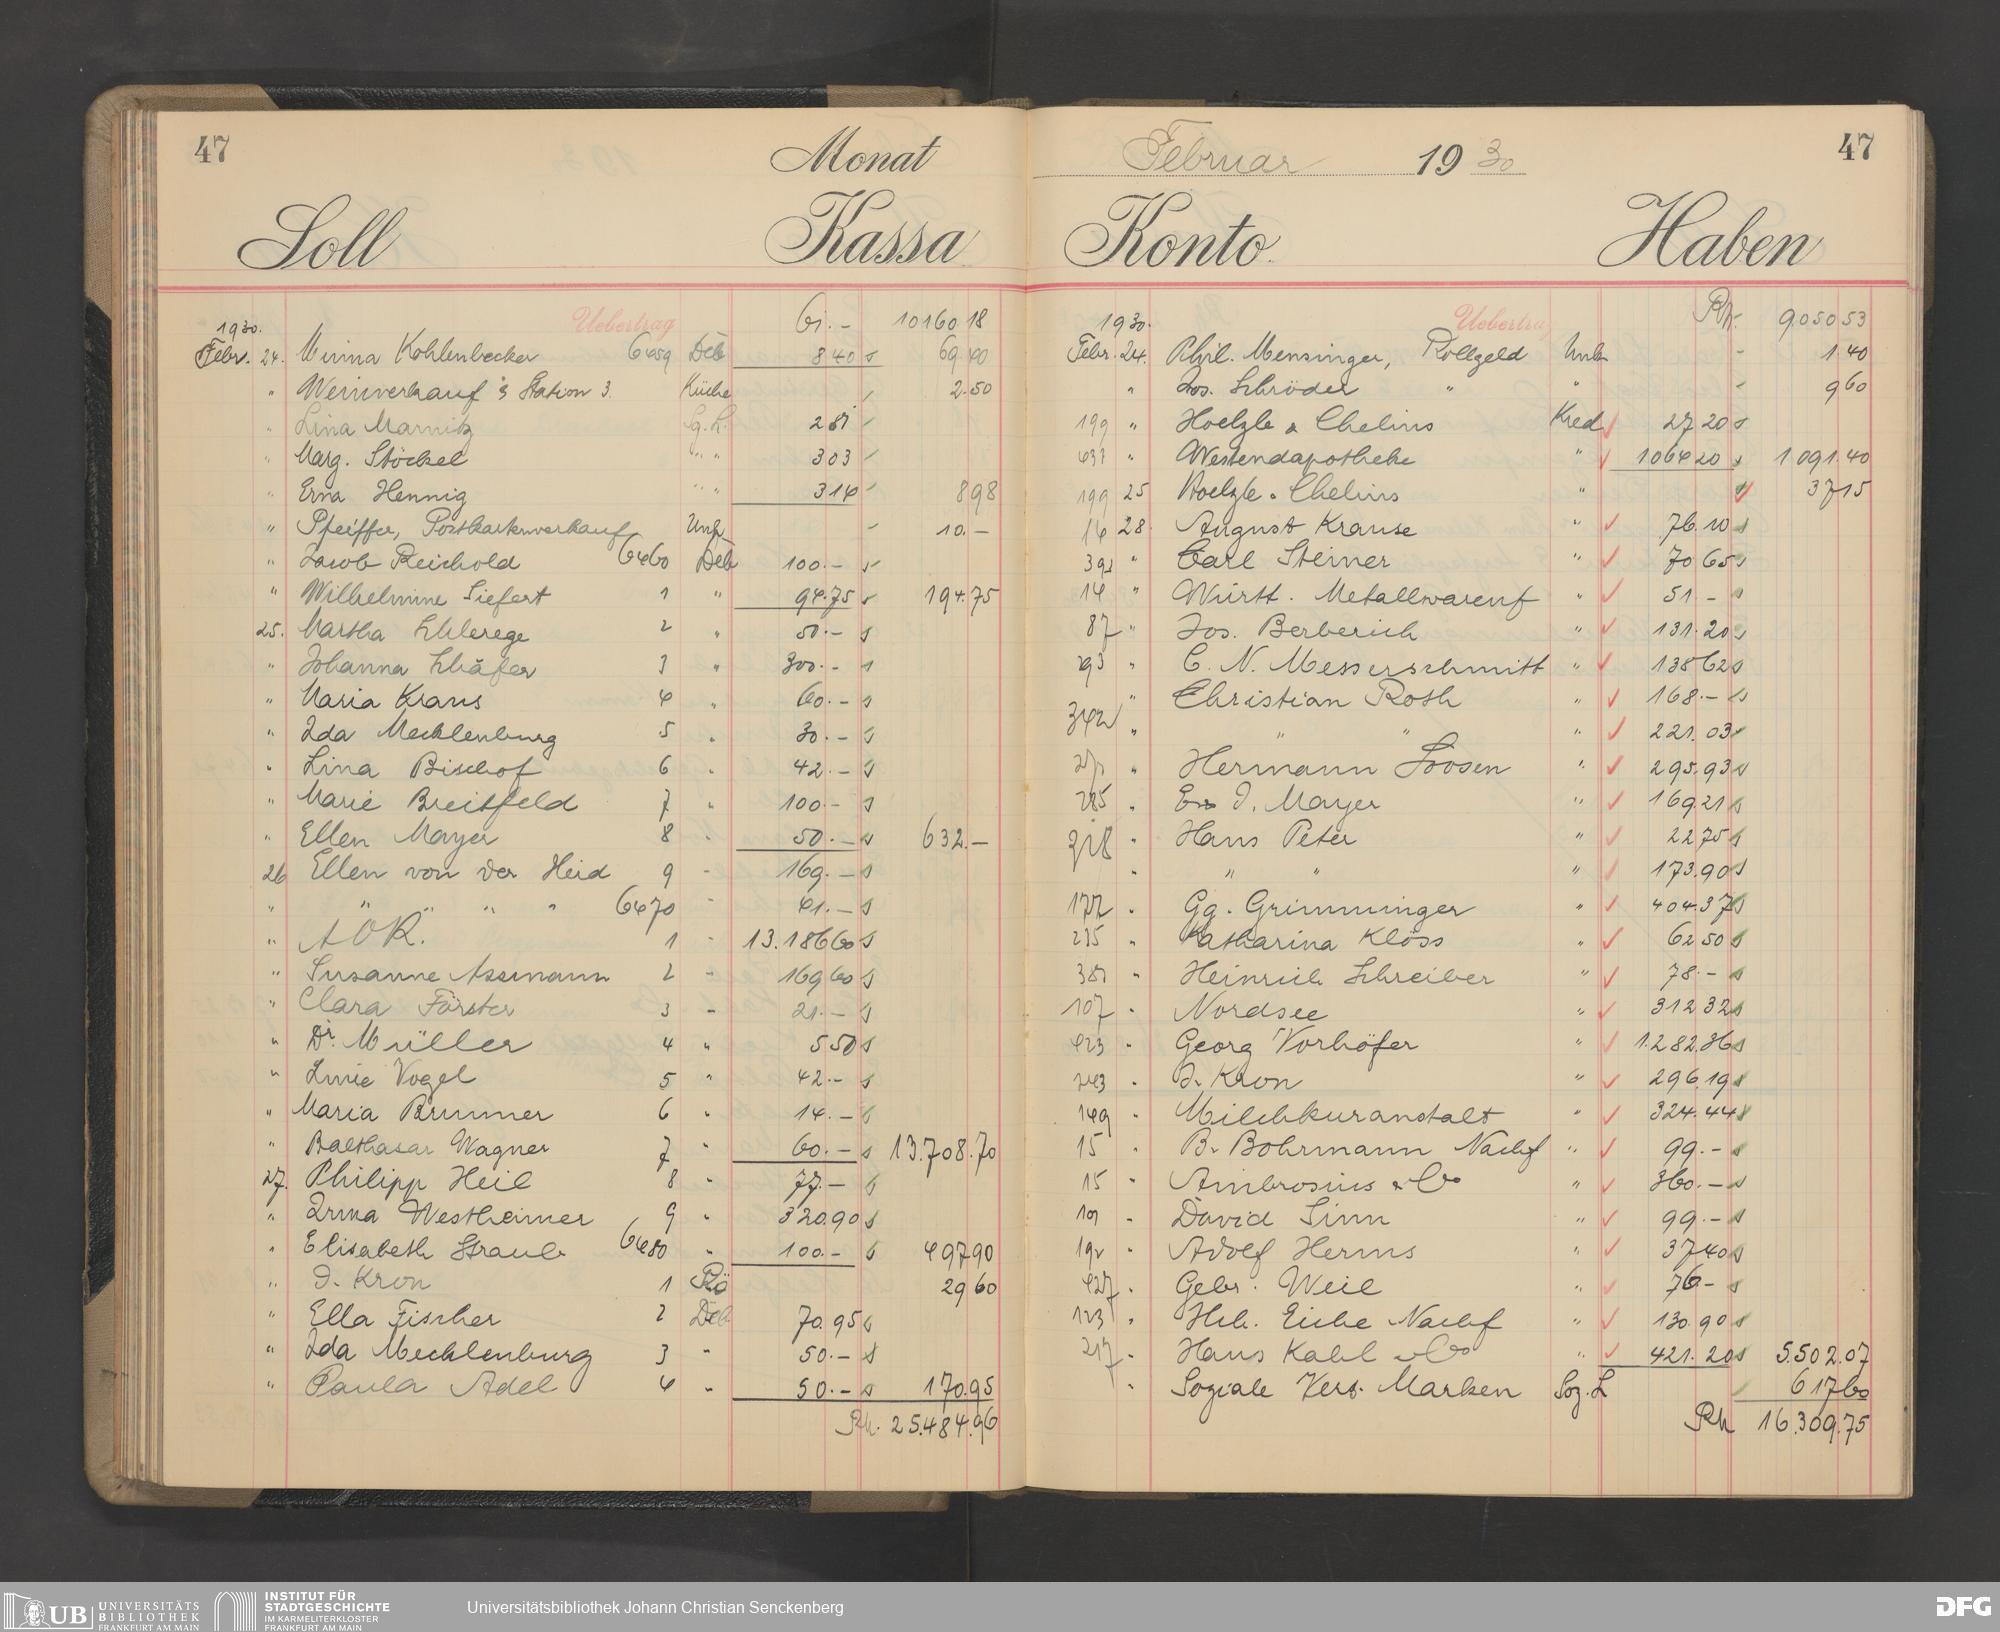 47
Monat
Soll Kassa
Uebertrag 61.- 10160 18
1930.
Febr. 24. Minna Kohlenbecker 6459 Deb 8 40 69.40
" Weinverkauf Station 3. Küche 2.50
" Lina Marnitz 281
" Marg. Stöckel " " 303
" Erna Hennig " " 314 898
" Pfeiffer, Postkartenverkauf Unk 10.-
" Jacob Reichold 6460 Deb 100.-
" Wilhelmine Siefert 1 " 94.75 194.75
25. Martha Schlerege 2 " 50.-
" Johanna Schäfer 3 " 300.-
" Maria Kraus 4 " 60.-
" Ida Mecklenburg 5 " 30.-
" Lina Bischof 6 " 42.-
" Marie Breitfeld 7 " 100.-
" Ellen Mayer 8 " 50.- 632.-
26 Ellen von der Heid 9 " 169.-
" " " " " 6470 " 41.-
" AOK. 1 " 13.186 60
" Susanne Assmann 2 " 169 60
" Clara Förster 3 " 21.-
" Dr. Müller 4 " 5 50
" Vogel 5 " 42.-
" Maria Brummer 6 " 14.-
" Balthasar Wagner 7 " 60.- 13.708.70
27. Philipp Heil 8 " 77.-
" Irma Westheimer 9 " 320.90
" Elisabeth Straub 6480 " 100.- 497 90
" J. Kron 1 29 60
" Ella Fischer 2 Deb 70.95
" Ida Mecklenburg 3 " 50.-
" Paula Adel 4 " 50.- 170.95
Rm. 25.484.96
47
Februar 1930
Konto Haben
Uebertrag Rm. 9.050 53
1930.
Febr. 24. Phil. Mensinger, Rollgeld Unk - 1.40
" Jos. Schröder " " 9 60
199 " Hoelzle & Chelius Kred 27 20
437 " Westendapotheke " 1064 20 1 091.40
199 25 Hoelzle & Chelius " 37 15
14 28. August Krause " 76.10
" Carl Steiner " 70 65
14 " Württ. Metallwarenf " 51 -
87 " Jos. Berberich " 131.20
293 " C. N. Messerschmitt " 138 62
" Christian Roth " 168.-
342 " " " " 221.03
" Hermann Loosen " 295.93
285 " J. Mayer " 169.21
318 " Hans Peter " 22 75
" " " " 173.90
177 " Gg. Grimminger " 404.37
235 " Katharina Klöss " 62 50
" Heinrich Schreiber " 78.-
107 " Nordsee " 312 32
423 " Georg Vorhöfer " 1.282.36
243 " J. Kron " 296.19
149 " Milchkuranstalt " 324.44
15 " B. Bohrmann Nachf " 99.-
15 " Ambrosius & Co " 360.-
" David Sinn " 99.-
" Adolf Herms " 37 40
427 " Gebr. Weil " 76.-
123 " Hch. Eiche Nachf " 130.90
217 " Hans Kahl & Co " 421.20 5.502.07
" Soziale Vers. Marken Soz. L 617 60
Rm 16.309.75
UB UNIVERSITÄTS BIBLIOTHEK FRANKFURT AM MAIN
INSTITUT FÜR STADTGESCHICHTE IM KARMELITERKLOSTER FRANKFURT AM MAIN
Universitätsbibliothek Johann Christian Senckenberg
DFG